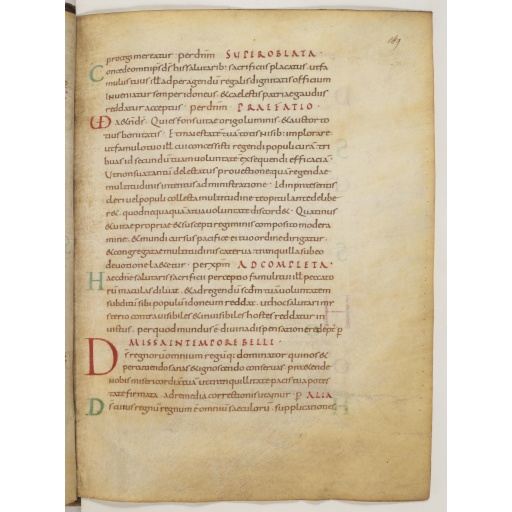 protego mereatur · per dnm SUPER OBLATA ·
Concede omnips ds his salutarib; sacrificiis placatus · ut fa
mulus tuus ill ad peragendum regalis dignitatis officium
inveniatur semper idoneus · & caelesti patriae gaudiis
reddatur acceptus · per dnm PRAEFATIO ·
UD aet ds · Qui es fons vitae origo luminis · & auctor to
tius bonitatis · Et maiestatē tuā totis nisib; implorare
ut famulo tuo ill cui concessisti regendi populi curā tri
buas id secundū tuam voluntatē exsequendi efficaciā ·
Ut non sua tantū delectatus provectione quā regendae
multitudinis intentus administratione ·
deri vel populi collesta multitudine te opitulante delibe
r& · quod nequaquā a tua voluntate discord& · Quatinus
& vitae propriae & suscepti regiminis composito modera
mine · & mundi cursus pacifico ei tuo ordine dirigatur ·
& congregatae multitudinis caterva tranquilla subeo
devotione la&etur · per xpm AD COMPLETA ·
Haec dne salutaris sacrificii perceptio famuli tui ill peccato
rū maculas diluat · & ad regendū scdm tuā voluntatem
subditū sibi populū idoneum reddat · ut hoc salutari my
sterio contra visibiles & invisibiles hostes reddatur in
victus · per quod mundus ē divina dispensatione redēpt p
MISSA IN TEMPORE BELLI ·
Ds regnorū omnium regūq; dominator qui nos &
percutiendo sanas & ignoscendo conservas · pra&ende
nobis misericordiā tuā ut tranquillitate pacis tua potes
tate firmata · ad remedia correctionis utamur p ALIA
Ds cuius regnū regnum ē omniū saeculorū · supplicationes